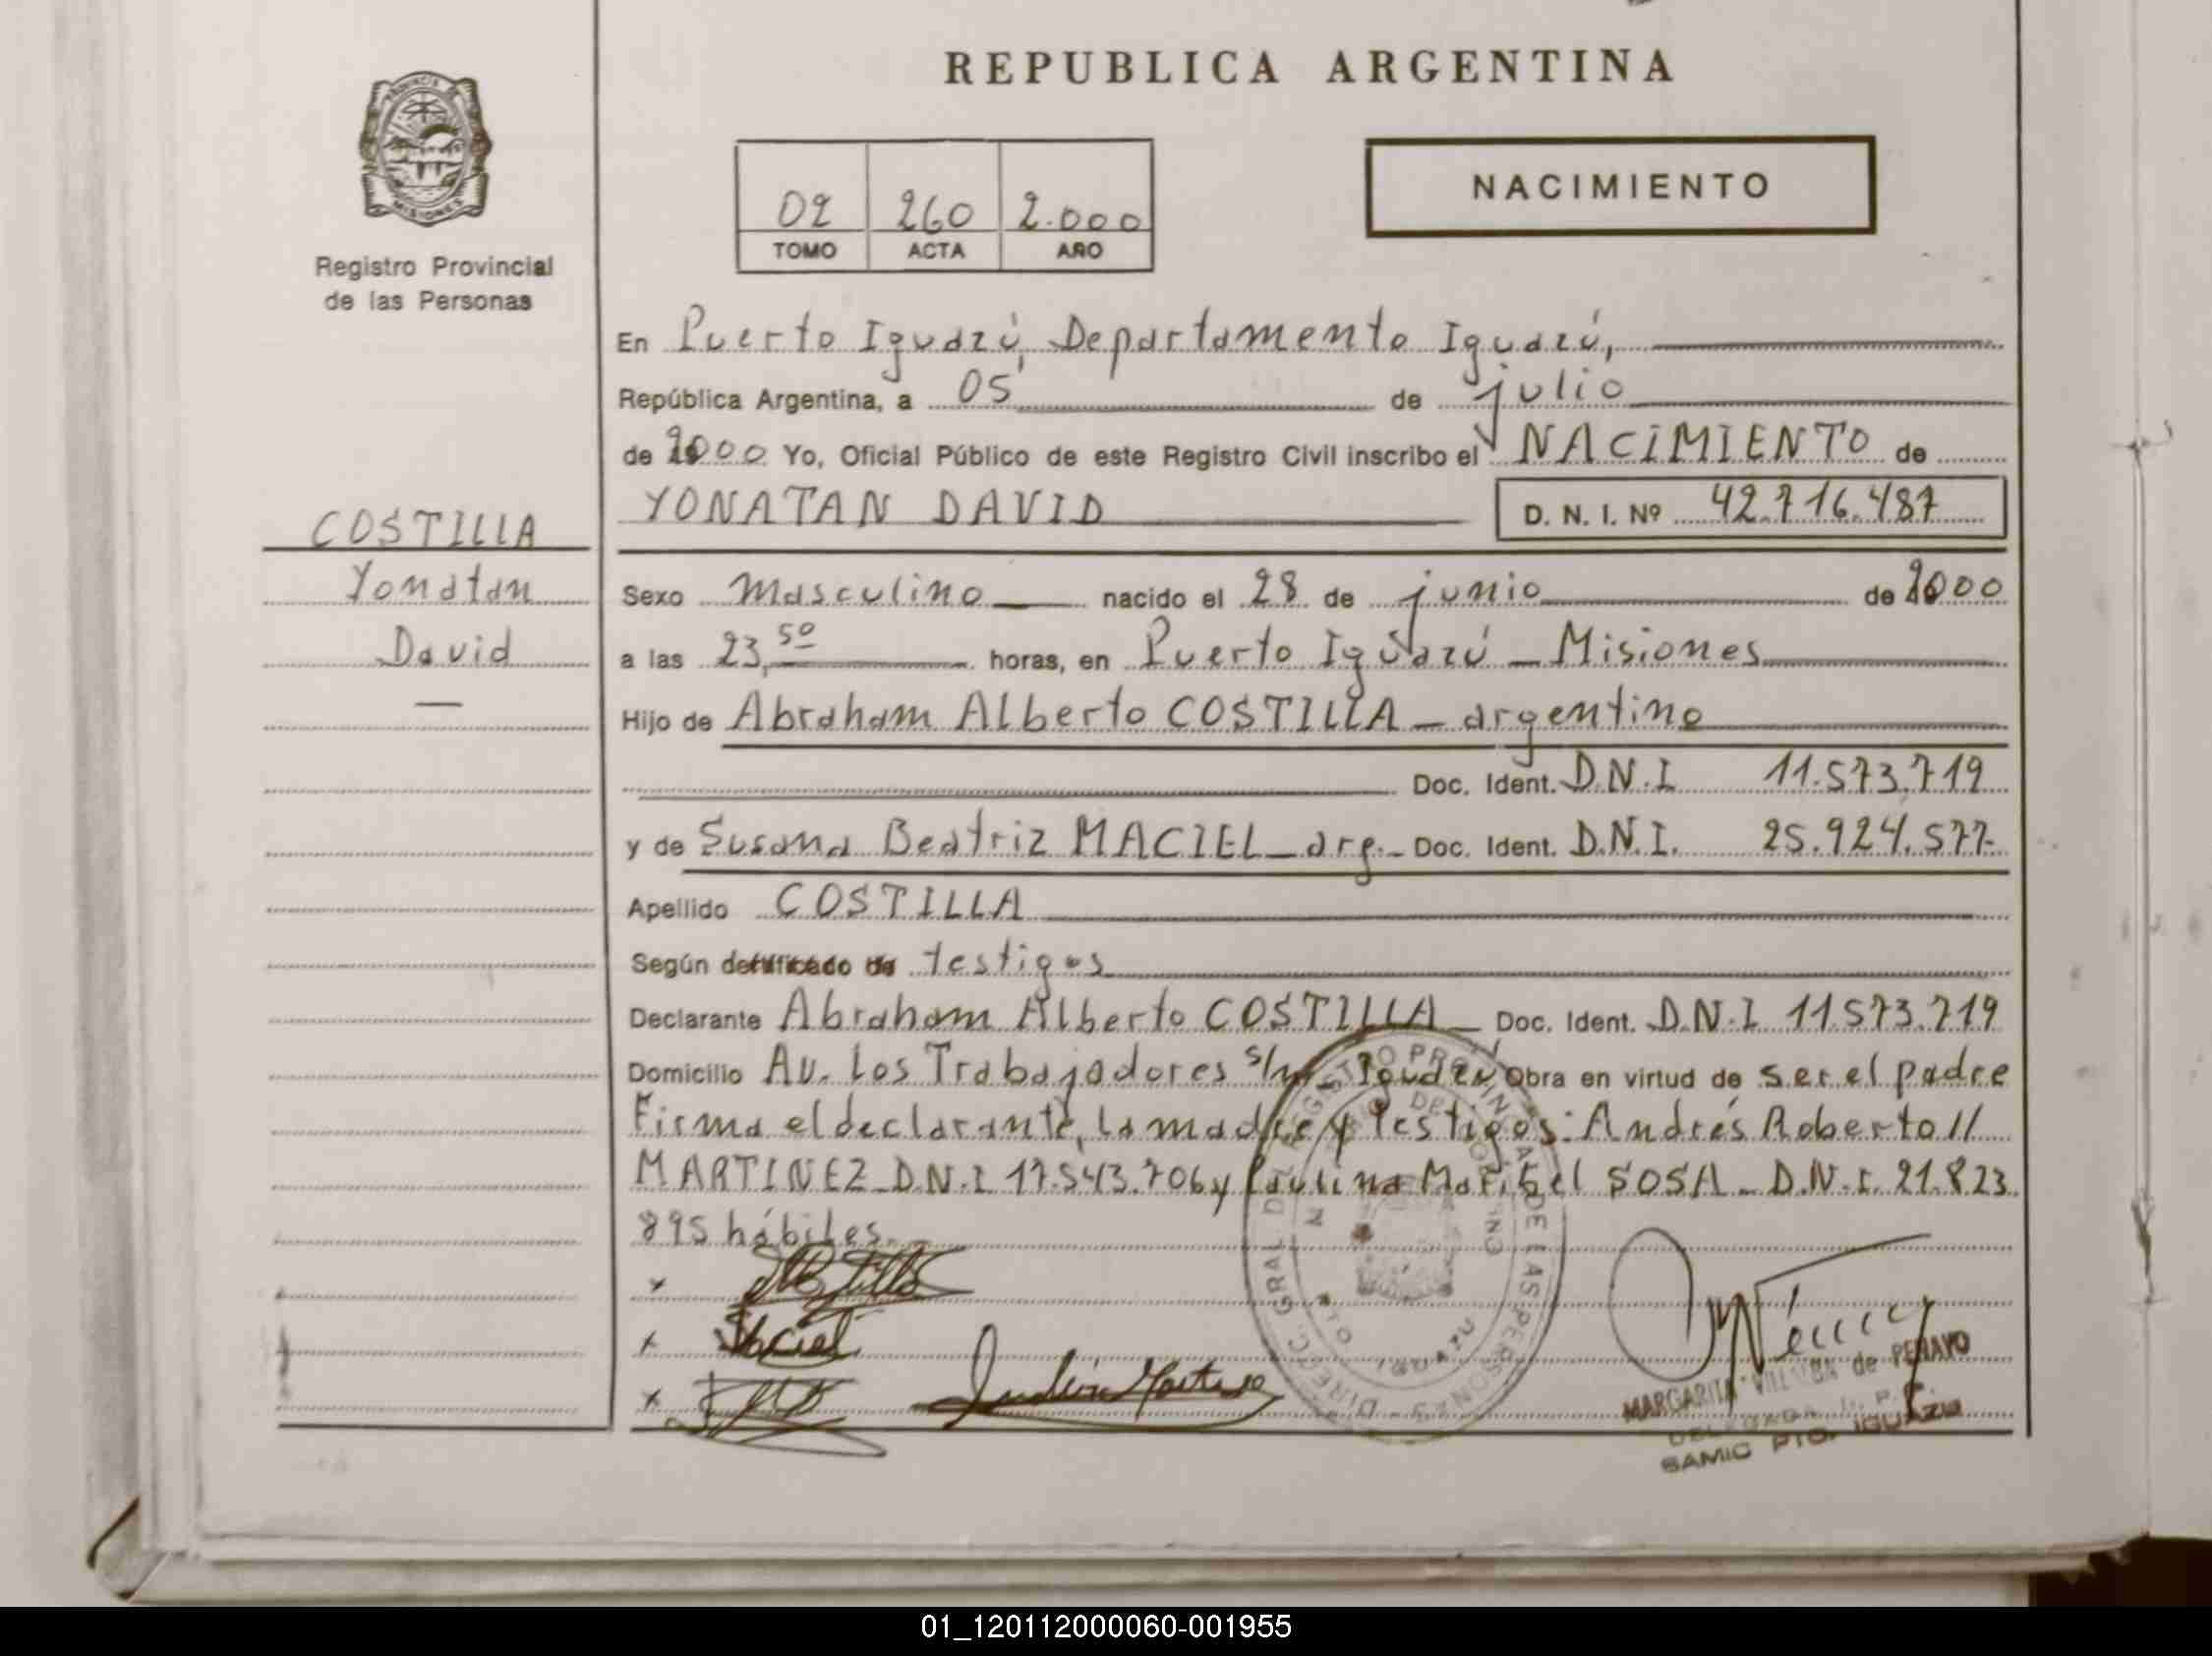 REPUBLICA ARGENTINA
PROVINCIA DE
MISIONES
Registro Provincial
de las Personas
02 260 2.000
TOMO ACTA AÑO
NACIMIENTO
En Puerto Iguazú, Departamento Iguazú,
República Argentina, a 05 de julio
de 2000 Yo, Oficial Público de este Registro Civil inscribo el NACIMIENTO de
YONATAN DAVID D. N. I. Nº 42.716.487
COSTILLA
Yonatan
David
Sexo masculino nacido el 28 de junio de 2000
a las 23,50 horas, en Puerto Iguazú - Misiones
Hijo de Abraham Alberto COSTILLA - argentino
Doc. Ident. D.N.I 11.573.719
y de Susana Beatriz MACIEL - arg. - Doc. Ident. D.N.I. 25.924.577
Apellido COSTILLA
Según testigos
Declarante Abraham Alberto COSTILLA - Doc. Ident. D.N.I 11.573.719
Domicilio Av. Los Trabajadores s/n - Iguazú Obra en virtud de ser el padre
Firma el declarante, la madre y testigos: Andrés Roberto //
MARTINEZ - D.N.I 17.543.706 y Paulina Maribel SOSA - D.N.I. 21.823.
895 hábiles.
DIRECC. GRAL DEL REGISTRO PROVINCIAL DE LAS PERSONAS
MARGARITA de PENAYO
SAMIC PTO. IGUAZU
01_120112000060-001955